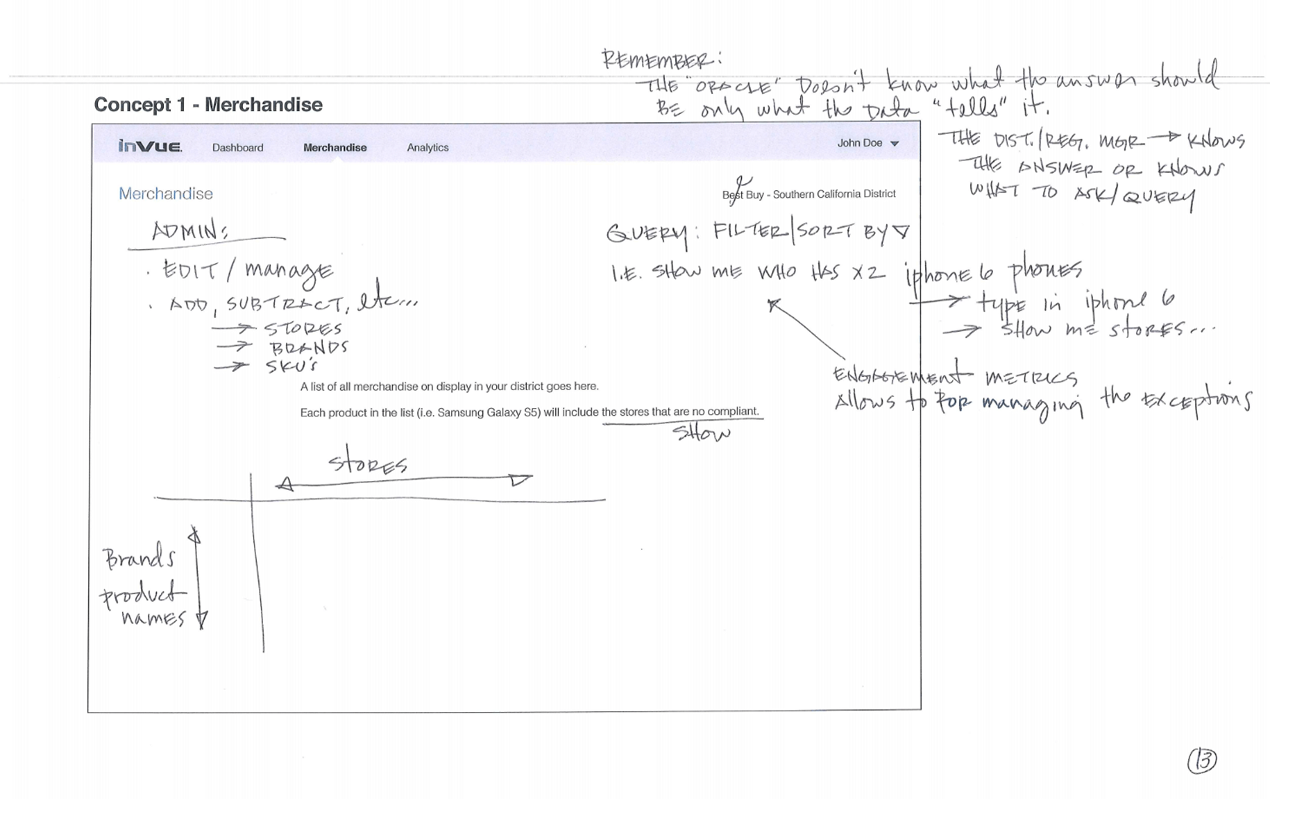 REMEMBER:
THE "ORACLE" Doesn't know what the answer should
BE only what the DATA "tells" it.
Concept 1 - Merchandise
THE DIST./REG. MGR → KNOWS
THE ANSWER OR KNOWS
WHAT TO ASK/QUERY
inVUE. Dashboard Merchandise Analytics John Doe
Merchandise
Best Buy - Southern California District
ADMIN:
· EDIT / manage
· ADD, SUBTRACT, etc...
→ STORES
→ BRANDS
→ SKU's
QUERY: FILTER/SORT BY ▽
I.E. SHOW ME WHO HAS X2 iphone 6 phones
→ type in iphone 6
→ SHOW ME STORES...
ENGAGEMENT METRICS
Allows to for managing the EXCEPTIONS
A list of all merchandise on display in your district goes here.
Each product in the list (i.e. Samsung Galaxy S5) will include the stores that are no compliant.
SHOW
STORES
Brands
product
names
13